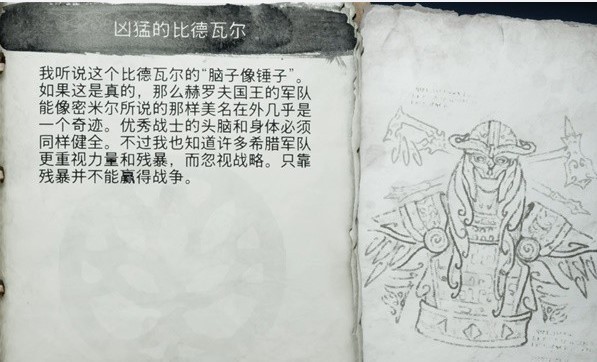 凶猛的比德瓦尔
我听说这个比德瓦尔的“脑子像锤子”。
如果这是真的，那么赫罗夫国王的军队
能像密米尔所说的那样美名在外几乎是
一个奇迹。优秀战士的头脑和身体必须
同样健全。不过我也知道许多希腊军队
更重视力量和残暴，而忽视战略。只靠
残暴并不能赢得战争。